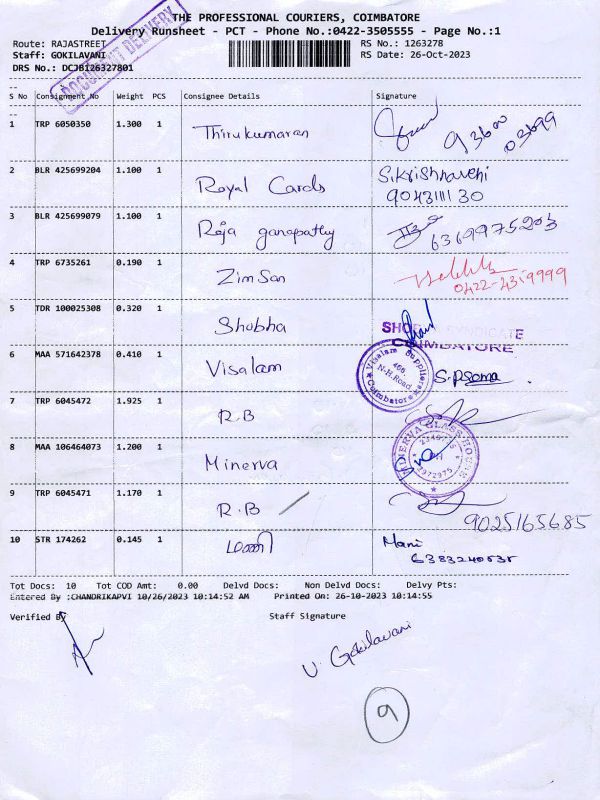 THE PROFESSIONAL COURIERS, COIMBATORE
Delivery Runsheet - PCT - Phone No.:0422-3505555 - Page No.:1
Route: RAJASTREET
RS No.: 1263278
Staff: GOKILAVANI
RS Date: 26-Oct-2023
DRS No.: DCJB126327801
DOCUMENT DELIVERY
S No Consignment No Weight PCS Consignee Details Signature
1 TRP 6050350 1.300 1 Thirukumaran 93600 03699
2 BLR 425699204 1.100 1 Royal Cards S.Krishnaveni
9043111130
3 BLR 425699079 1.100 1 Raja ganapathy 6369975203
4 TRP 6735261 0.190 1 Zimson
0422-4319999
5 TDR 100025308 0.320 1 Shobha SYNDICATE
COIMBATORE
6 MAA 571642378 0.410 1 Visalam S.P.Soma
Visalam Supplier
466,
N.H.Road,
Coimbatore
7 TRP 6045472 1.925 1 R.B
8 MAA 106464073 1.200 1 Minerva
MINERVA GLASS HOUSE
9 TRP 6045471 1.170 1 R.B
9025165685
10 STR 174262 0.145 1 மணி Mani
Tot Docs: 10 Tot COD Amt: 0.00 Delvd Docs: Non Delvd Docs: Delvy Pts:
Entered By :CHANDRIKAPVI 10/26/2023 10:14:52 AM Printed On: 26-10-2023 10:14:55
Verified By Staff Signature
V. Gokilavani
9